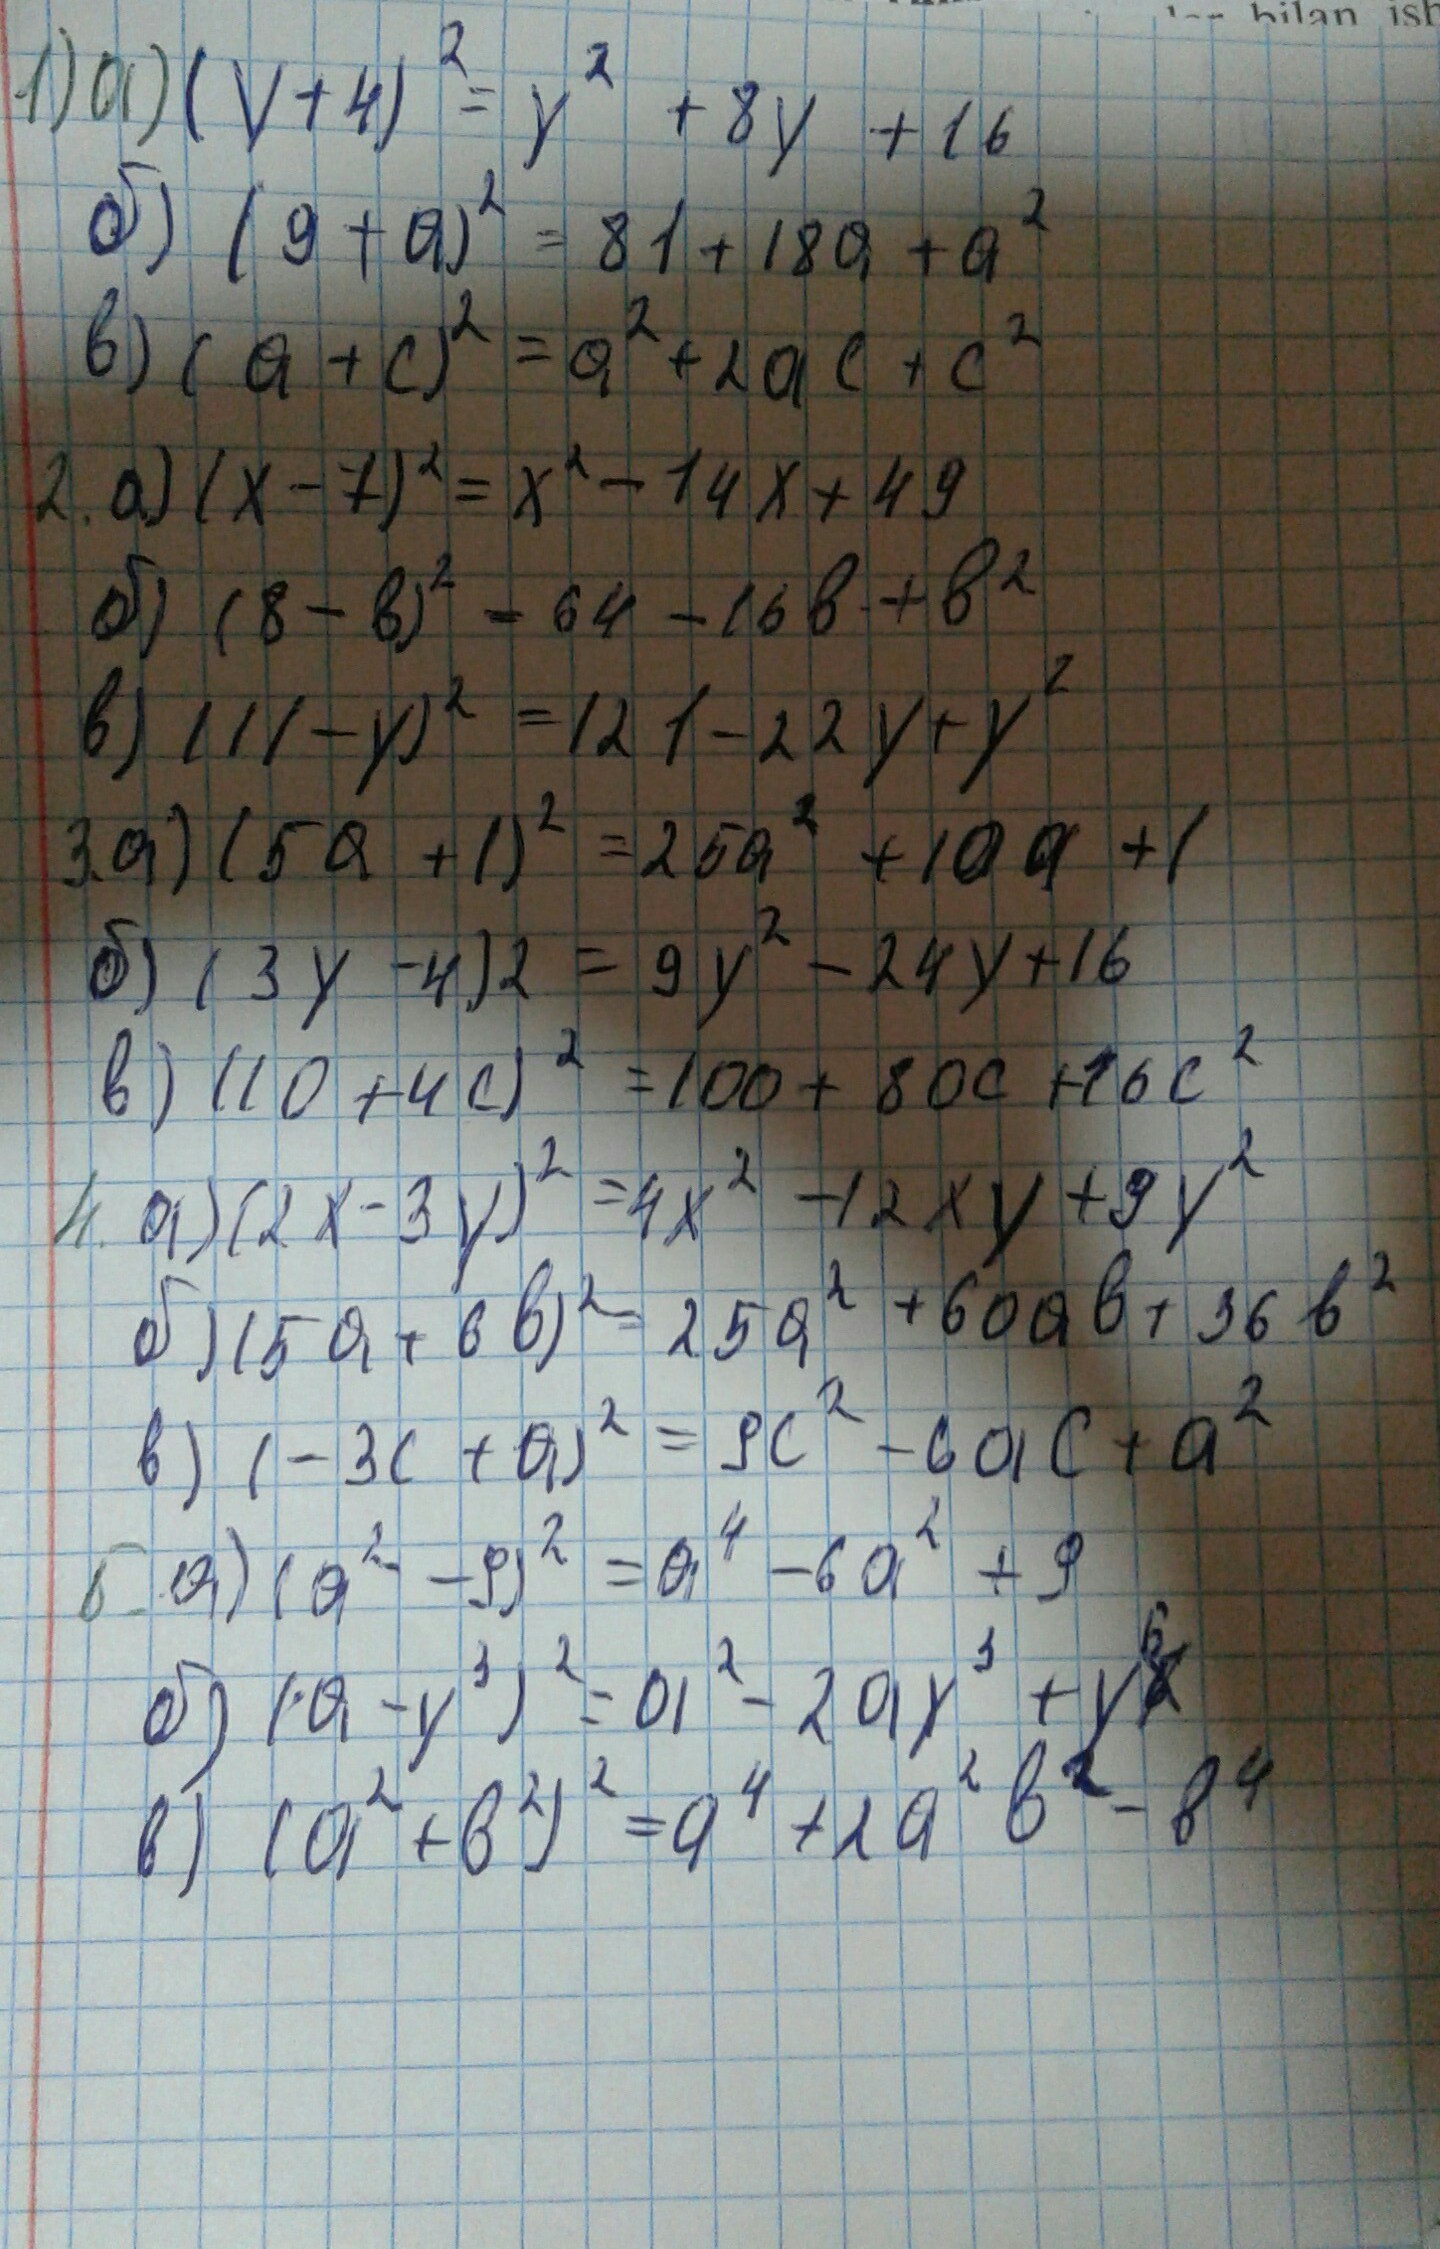 bilan ish
1) а) (y+4)² = y² + 8y + 16
б) (9+a)² = 81+18a+a²
в) (a+c)² = a²+2ac+c²
2. а) (x-7)² = x²-14x+49
б) (8-в)² - 64-16в+в²
в) (11-y)² = 121-22y+y²
3. а) (5a+1)² = 25a²+10a+1
б) (3y-4)2 = 9y²-24y+16
в) (10+4c)² = 100+80c+16c²
4. а) (2x-3y)² = 4x²-12xy+9y²
б) (5a+6в)² = 25a²+60aв+36в²
в) (-3c+a)² = 9c²-6ac+a²
5. а) (a²-9)² = a⁴-6a²+9
б) (a-y³)² = a²-2ay³+y⁶
в) (a²+в²)² = a⁴+2a²в²-в⁴